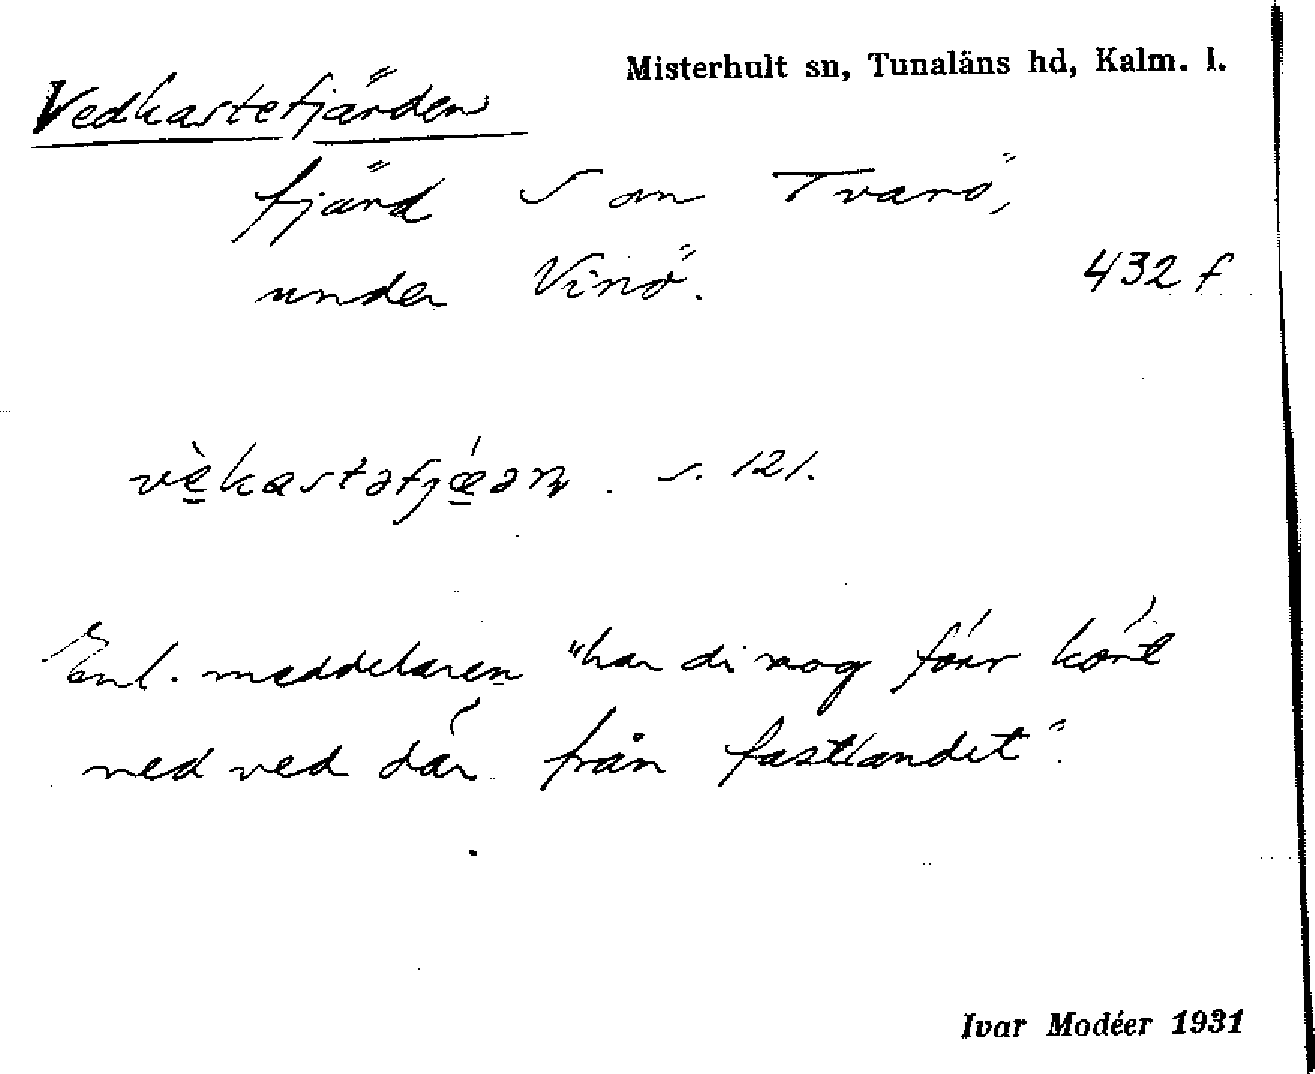 Misterhult sn, Tunaläns hd, Kalm. l.
Vedkastefjärden
fjärd S om Tvarö,
under Vinö. 432 f
vè̱kastəfjǽ̱ən. s. 121.
Enl. meddelaren "har di nog förr kört
ned ved där från fastlandet".
Ivar Modéer 1931